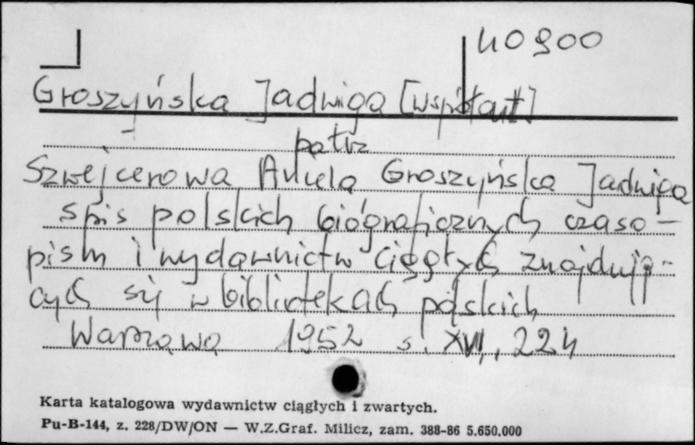 40900
Groszyńska Jadwiga [współaut]
patrz
Szwejcerowa Aniela Groszyńska Jadwiga
spis polskich biograficznych czaso-
pism i wydawnictw ciągłych znajdują-
cych się w bibliotekach polskich
Warszawa 1952 s. XVI, 224
Karta katalogowa wydawnictw ciągłych i zwartych.
Pu-B-144, z. 228/DW/ON — W.Z.Graf. Milicz, zam. 388-86 5.650.000